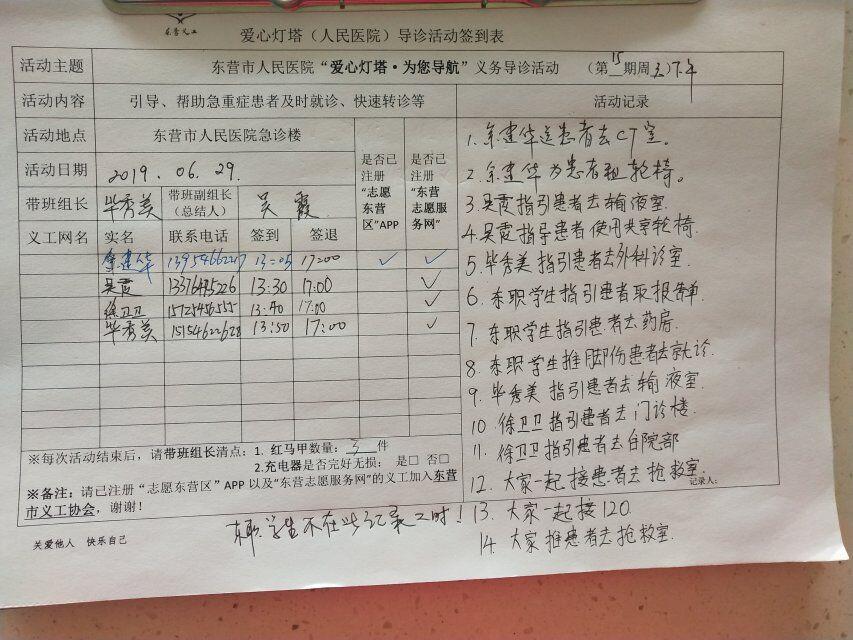 东营义工
爱心灯塔（人民医院）导诊活动签到表
活动主题 东营市人民医院“爱心灯塔·为您导航”义务导诊活动 （第15期周五）下午
活动内容 引导、帮助急重症患者及时就诊、快速转诊等 活动记录
活动地点 东营市人民医院急诊楼
活动日期 2019.06.29.
是否已注册“志愿东营区”APP
是否已注册“东营志愿服务网”
带班组长 毕秀美 带班副组长（总结人） 吴霞
义工网名 实名 联系电话 签到 签退
余建华 13:05 17:00 ✓ ✓
吴霞 13:30 17:00 ✓
徐卫卫 13:40 17:00 ✓
毕秀美 15154622628 13:50 17:00 ✓
1. 余建华送患者去CT室。
2. 余建华为患者租轮椅。
3. 吴霞指引患者去输液室.
4. 吴霞指导患者使用共享轮椅.
5. 毕秀美指引患者去外科诊室.
6. 东职学生指引患者取报告单.
7. 东职学生指引患者去药房.
8. 东职学生推脚伤患者去就诊.
9. 毕秀美指引患者去输液室.
10. 徐卫卫指引患者去门诊楼.
11. 徐卫卫指引患者去住院部
12. 大家一起接患者去抢救室.
记录人：
13. 大家一起接120.
14. 大家推患者去抢救室.
※每次活动结束后，请带班组长清点：1. 红马甲数量：3件
2.充电器是否完好无损： 是□ 否□
※备注：请已注册“志愿东营区”APP以及“东营志愿服务网”的义工加入东营
市义工协会，谢谢！
东职学生不在此纪录工时！
关爱他人 快乐自己